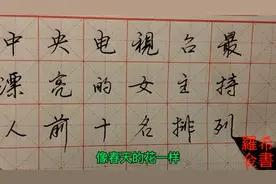 中央电视台最
漂亮的女主持
人前十名排列
像春天的花一样
羅布
食書